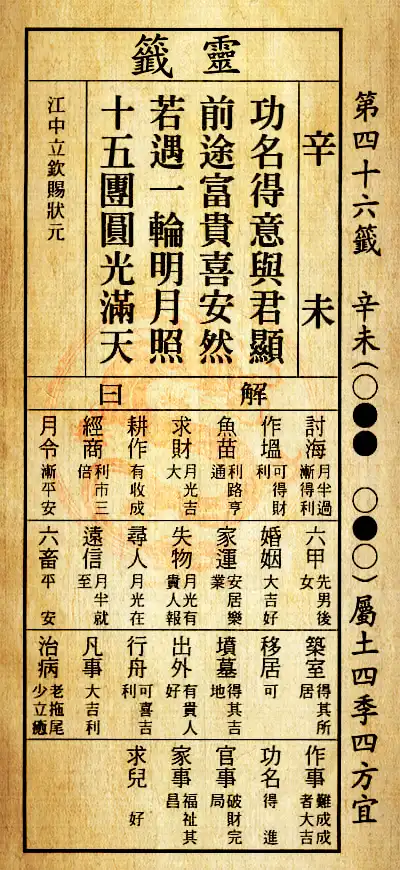 第四十六籤 辛未(○●● ○●○)屬土四季四方宜
靈籤
辛未
功名得意與君顯
前途富貴喜安然
若遇一輪明月照
十五團圓光滿天
江中立欽賜狀元
解曰
討海 月半過漸得利
作塭 可得財利
魚苗 利路亨通
求財 月光吉大
耕作 有收成
經商 利市三倍
月令 漸平安
六甲 先男後女
婚姻 大吉好
家運 安居樂業
失物 月光有貴人報
尋人 月光在
遠信 月半就至
六畜 平安
築室 得其所居
移居 可
墳墓 得其吉地
出外 有貴人好
行舟 可喜吉利
凡事 大吉利
治病 老拖尾少立癒
作事 難成成者大吉
功名 得進
官事 破財完局
家事 福祉其昌
求兒 好